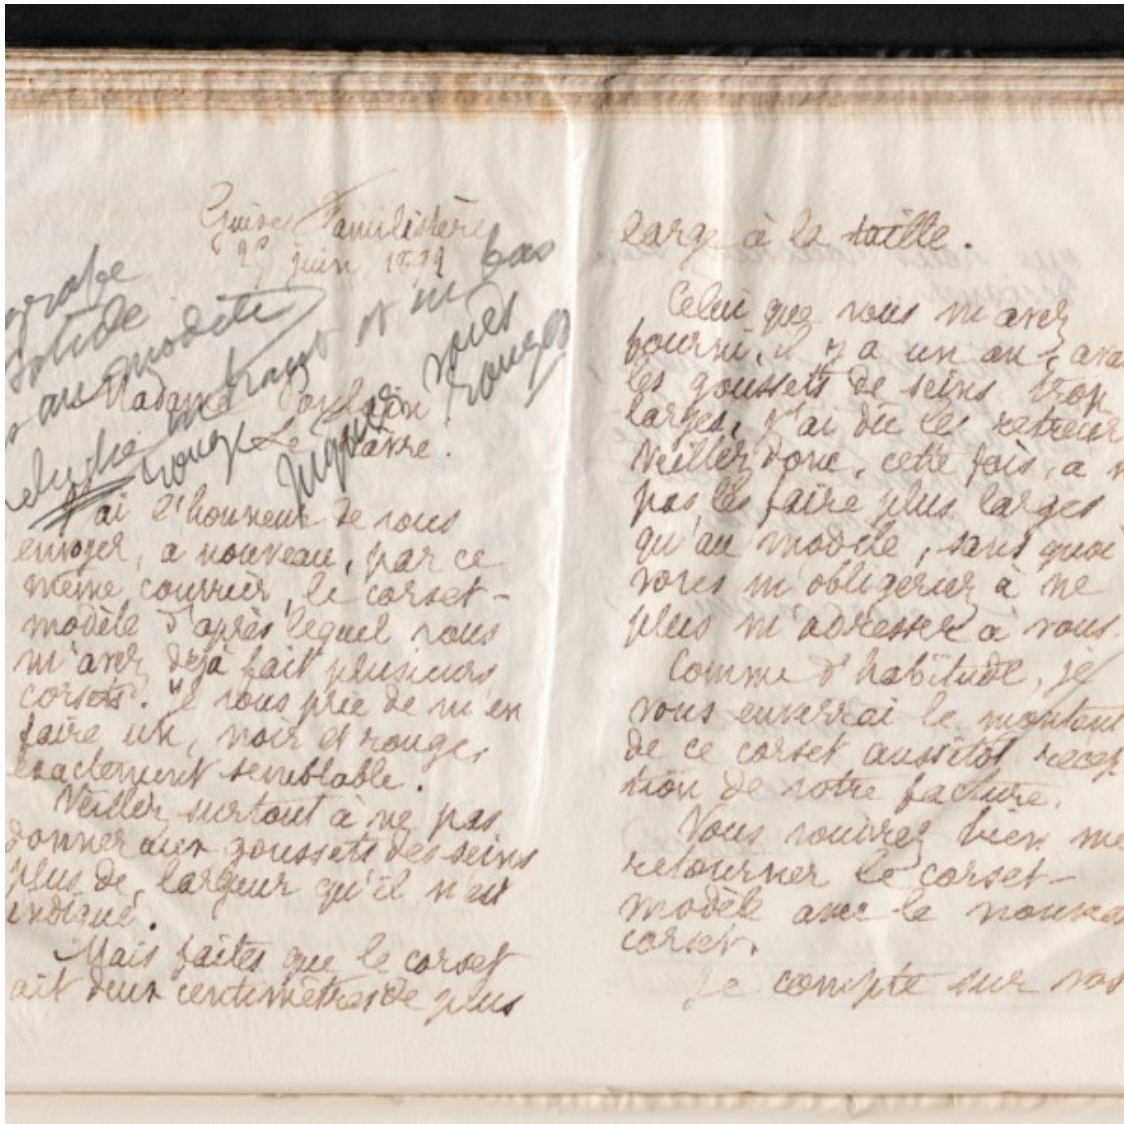 Guise Familistère
29 juin 1899
Madame Poulain
Le Havre.
J'ai l'honneur de vous
envoyer, à nouveau, par ce
même courrier, le corset-
modèle d'après lequel vous
m'avez déjà fait plusieurs
corsets. Je vous prie de m'en
faire un, noir et rouge,
exactement semblable.
Veillez surtout à ne pas
donner aux goussets des seins
plus de largeur qu'il n'est
indiqué.
Mais faites que le corset
ait deux centimètres de plus
large à la taille.
Celui que vous m'avez
fourni, il y a un an, ava
les goussets de seins trop
larges, j'ai dû les retrecir
Veillez donc, cette fois, à n
pas les faire plus larges
qu'au modèle, sans quoi
vous m'obligeriez à ne
plus m'adresser à vous.
Comme d'habitude, je
vous enverrai le montant
de ce corset aussitôt récep
tion de votre facture.
Vous voudrez bien me
retourner le corset-
modèle avec le nouvea
corset.
Je compte sur vos
solide
au modèle
bas
rouge
rouges